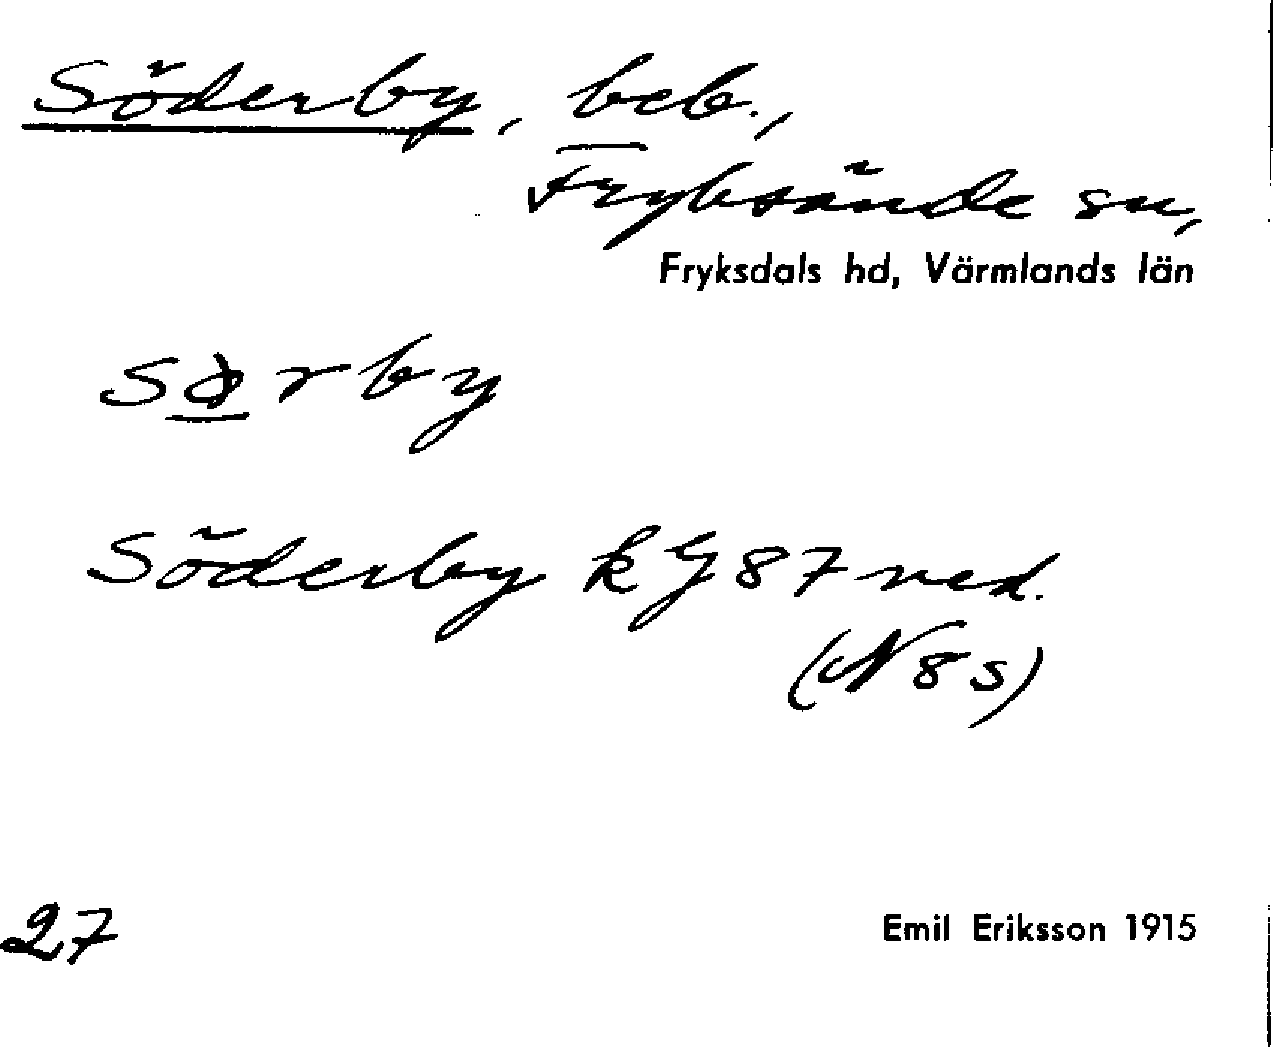 Söderby, beb.,
Fryksände sn,
Fryksdals hd, Värmlands län
Söderby kJ 87 ned.
(N 8 s)
27
Emil Eriksson 1915